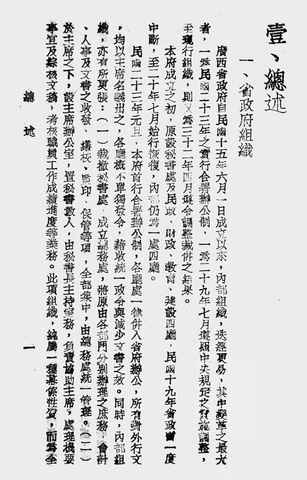 壹、總述
一、省政府組織
廣西省政府自民國十五年六月一日成立以來，內部組織，迭經更易，其中變革之最大
者，一為民國二十三年之實行合署辦公制，一為二十九年七月遵照中央規定之行政調整，
至現行組織，則又為三十二年四月遵令調整裁併之結果。
本府成立之初，原設秘書處及民政、財政、教育、建設四廳，民國十九年省政府一度
中斷，至二十年七月始行恢復，內部仍為一處四廳。
民國二十三年元旦，本府首行合署辦公制，各廳處一律併入省府辦公，所有對外行文
均以主席名義出之，各廳概不單獨發令，藉收統一政令與減少文書之效。同時，內部組
織，亦有所更張：（一）裁撤秘書處，成立總務處，將原由各部門分別辦理之庶務、會計
、人事及文書之收發、繕校、監印、保管等項，全部集中，由總務處統一管理。（二）
於主席之下，設主席辦公室，置秘書數人，由秘書長主持室務，負責協助主席，處理機要
事宜及綜核文稿，考核職員工作成績進度等業務。此項組織，純屬一種幕僚性質，而為全
總述
一